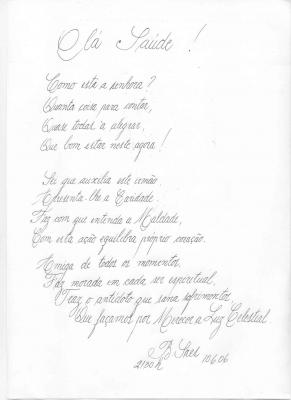 Olá Saúde!
Como está a senhora?
Quanta coisa para contar,
Quase todas a alegrar,
Que bom estar neste agora!
Sei que auxilia este irmão.
Apresenta-lhe a Caridade.
Faz com que entenda a Maldade,
Com esta ação equilibra próprio coração.
Amiga de todos os momentos.
Faz morada em cada ser espiritual,
Traz o antídoto que sana sofrimentos
Que façamos por Merecer a Luz Celestial.
10.6.06
21:00h